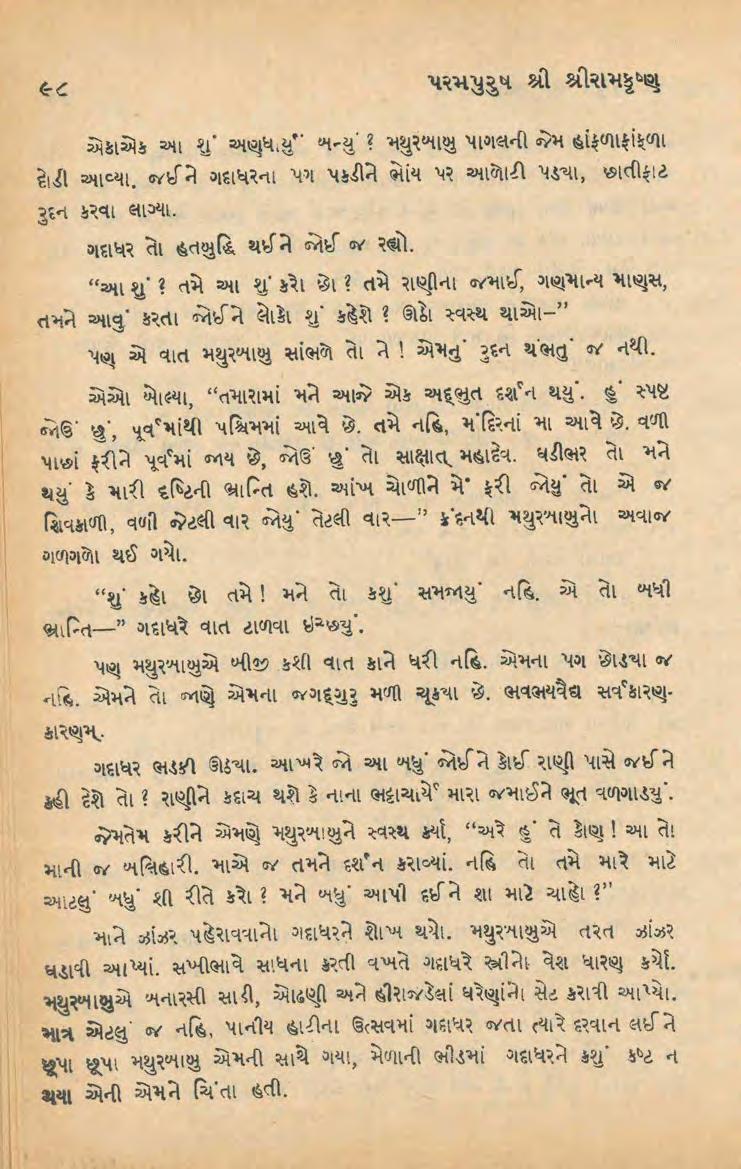 ૯૮
પરમપુરુષ શ્રી શ્રીરામકૃષ્ણ
એકાએક આ શું અણધાર્યું બન્યું ? મથુરબાબુ પાગલની જેમ હાંફળાફાંફળા
દોડી આવ્યા. જઈને ગદાધરના પગ પકડીને ભોંય પર આળોટી પડ્યા, છાતીફાટ
રુદન કરવા લાગ્યા.
ગદાધર તો હતબુદ્ધિ થઈને જોઈ જ રહ્યો.
“આ શું ? તમે આ શું કરો છો ? તમે રાણીના જમાઈ, ગણમાન્ય માણસ,
તમને આવું કરતા જોઈને લોકો શું કહેશે ? ઊઠો સ્વસ્થ થાઓ–”
પણ એ વાત મથુરબાબુ સાંભળે તો ને ! એમનું રુદન થંભતું જ નથી.
એઓ બોલ્યા, “તમારામાં મને આજે એક અદ્ભુત દર્શન થયું. હું સ્પષ્ટ
જોઉં છું, પૂર્વમાંથી પશ્ચિમમાં આવે છે. તમે નહિ, મંદિરનાં મા આવે છે. વળી
પાછાં ફરીને પૂર્વમાં જાય છે, જોઉં છું તો સાક્ષાત્ મહાદેવ. ઘડીભર તો મને
થયું કે મારી દૃષ્ટિની ભ્રાન્તિ હશે. આંખ ચોળીને મેં ફરી જોયું તો એ જ
શિવકાળી, વળી જેટલી વાર જોયું તેટલી વાર—” ક્રંદનથી મથુરબાબુનો અવાજ
ગળગળો થઈ ગયો.
“શું કહો છો તમે ! મને તો કશું સમજાયું નહિ. એ તો બધી
ભ્રાન્તિ—” ગદાધરે વાત ટાળવા ઇચ્છ્યું.
પણ મથુરબાબુએ બીજી કશી વાત કાને ધરી નહિ. એમના પગ છોડ્યા જ
નહિ. એમને તો જાણે એમના જગદ્ગુરુ મળી ચૂક્યા છે. ભવભયવૈદ્ય સર્વકારણ-
કારણમ્.
ગદાધર ભડકી ઊઠ્યા. આખરે જો આ બધું જોઈને કોઈ રાણી પાસે જઈને
કહી દેશે તો ? રાણીને કદાચ થશે કે નાના ભટ્ટાચાર્યે મારા જમાઈને ભૂત વળગાડ્યું.
જેમતેમ કરીને એમણે મથુરબાબુને સ્વસ્થ કર્યા, “અરે હું તે કોણ ! આ તો
માની જ બલિહારી. માએ જ તમને દર્શન કરાવ્યાં. નહિ તો તમે મારે માટે
આટલું બધું શી રીતે કરો ? મને બધું આપી દઈને શા માટે ચાહો ?”
માને ઝાંઝર પહેરાવવાનો ગદાધરને શોખ થયો. મથુરબાબુએ તરત ઝાંઝર
ઘડાવી આપ્યાં. સખીભાવે સાધના કરતી વખતે ગદાધરે સ્ત્રીનો વેશ ધારણ કર્યો.
મથુરબાબુએ બનારસી સાડી, ઓઢણી અને હીરાજડેલાં ઘરેણાંનો સેટ કરાવી આપ્યો.
માત્ર એટલું જ નહિ, પાનીય હાટીના ઉત્સવમાં ગદાધર જતા ત્યારે દરવાન લઈને
છૂપા છૂપા મથુરબાબુ એમની સાથે ગયા, મેળાની ભીડમાં ગદાધરને કશું કષ્ટ ન
થયા એની એમને ચિંતા હતી.